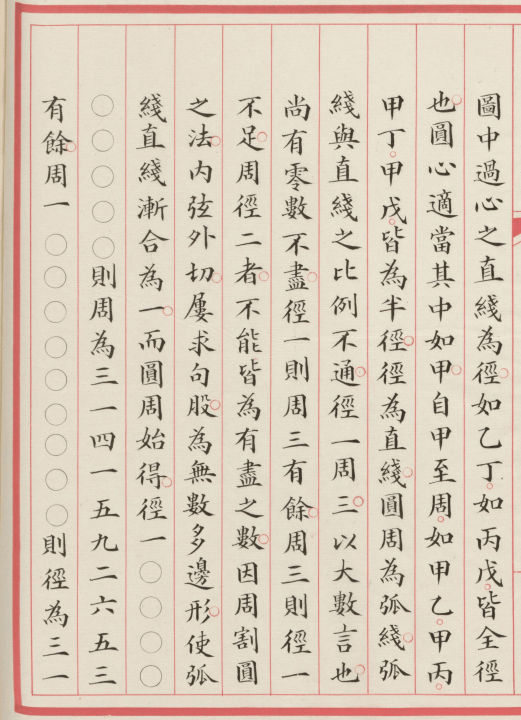 圖中過心之直綫為徑如乙丁如丙戊皆全徑
也圓心適當其中如甲自甲至周如甲乙甲丙
甲丁甲戊皆為半徑徑為直綫圓周為弧綫弧
綫與直綫之比例不通徑一周三以大數言也
尚有零數不盡徑一則周三有餘周三則徑一
不足周徑二者不能皆為有盡之數因周割圓
之法内弦外切屢求句股為無數多邊形使弧
綫直綫漸合為一而圓周始得徑一〇〇〇〇
〇〇〇〇〇則周為三一四一五九二六五三
有餘周一〇〇〇〇〇〇〇〇〇則徑為三一